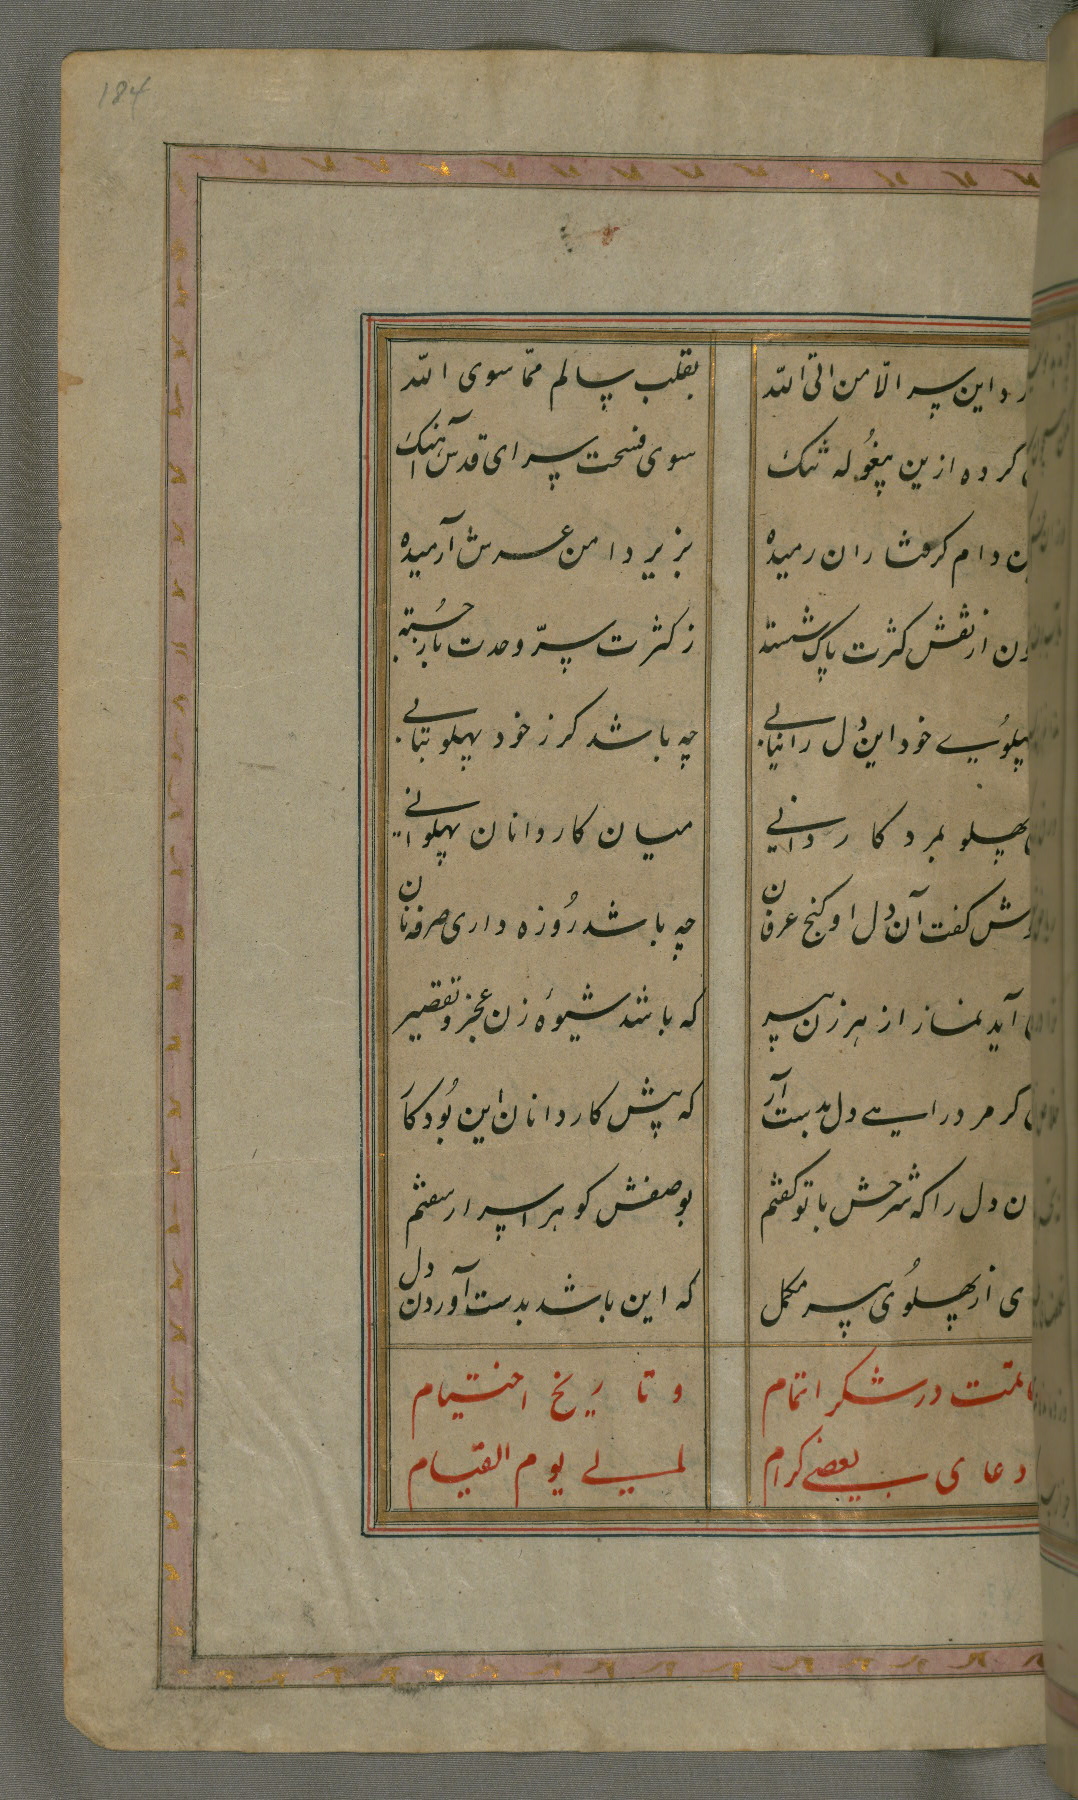 184
برد این سر الّا من اتی اللّه بقلب سالم ممّا سوی اللّه
کرده ازین پیغُوله تنک سوی فسحت سرای قدس آهنک
دام کرفتاران رمیده بزیر دامن عرش آرمیده
از نقش کثرت پاک شسته ز کثرت سرّ وحدت باز جُسته
پهلوُیے خود این دل را نیابے چه باشد کر ز خود پهلو بتابے
پهلو بمرد کاردانے میان کاردانان پهلوانے
کفت آن دُل او کنج عرفان چه باشد رُوزه داری صرفه نان
آید نماز از هر زن پیر که باشد شیوهٔ زن عجز و تقصیر
کر مردراهے دل بدست آر که پیش کاردانان این بُود کار
دل را که شرحش با تو کفتم بوصفش کوهر اسرار سفتم
از پهلوُی پیر مکمل که این باشد بدست آوردن دل
در شکر اتمام و تاریخ اختتام
دعای بعضے کرام لے یوم القیام